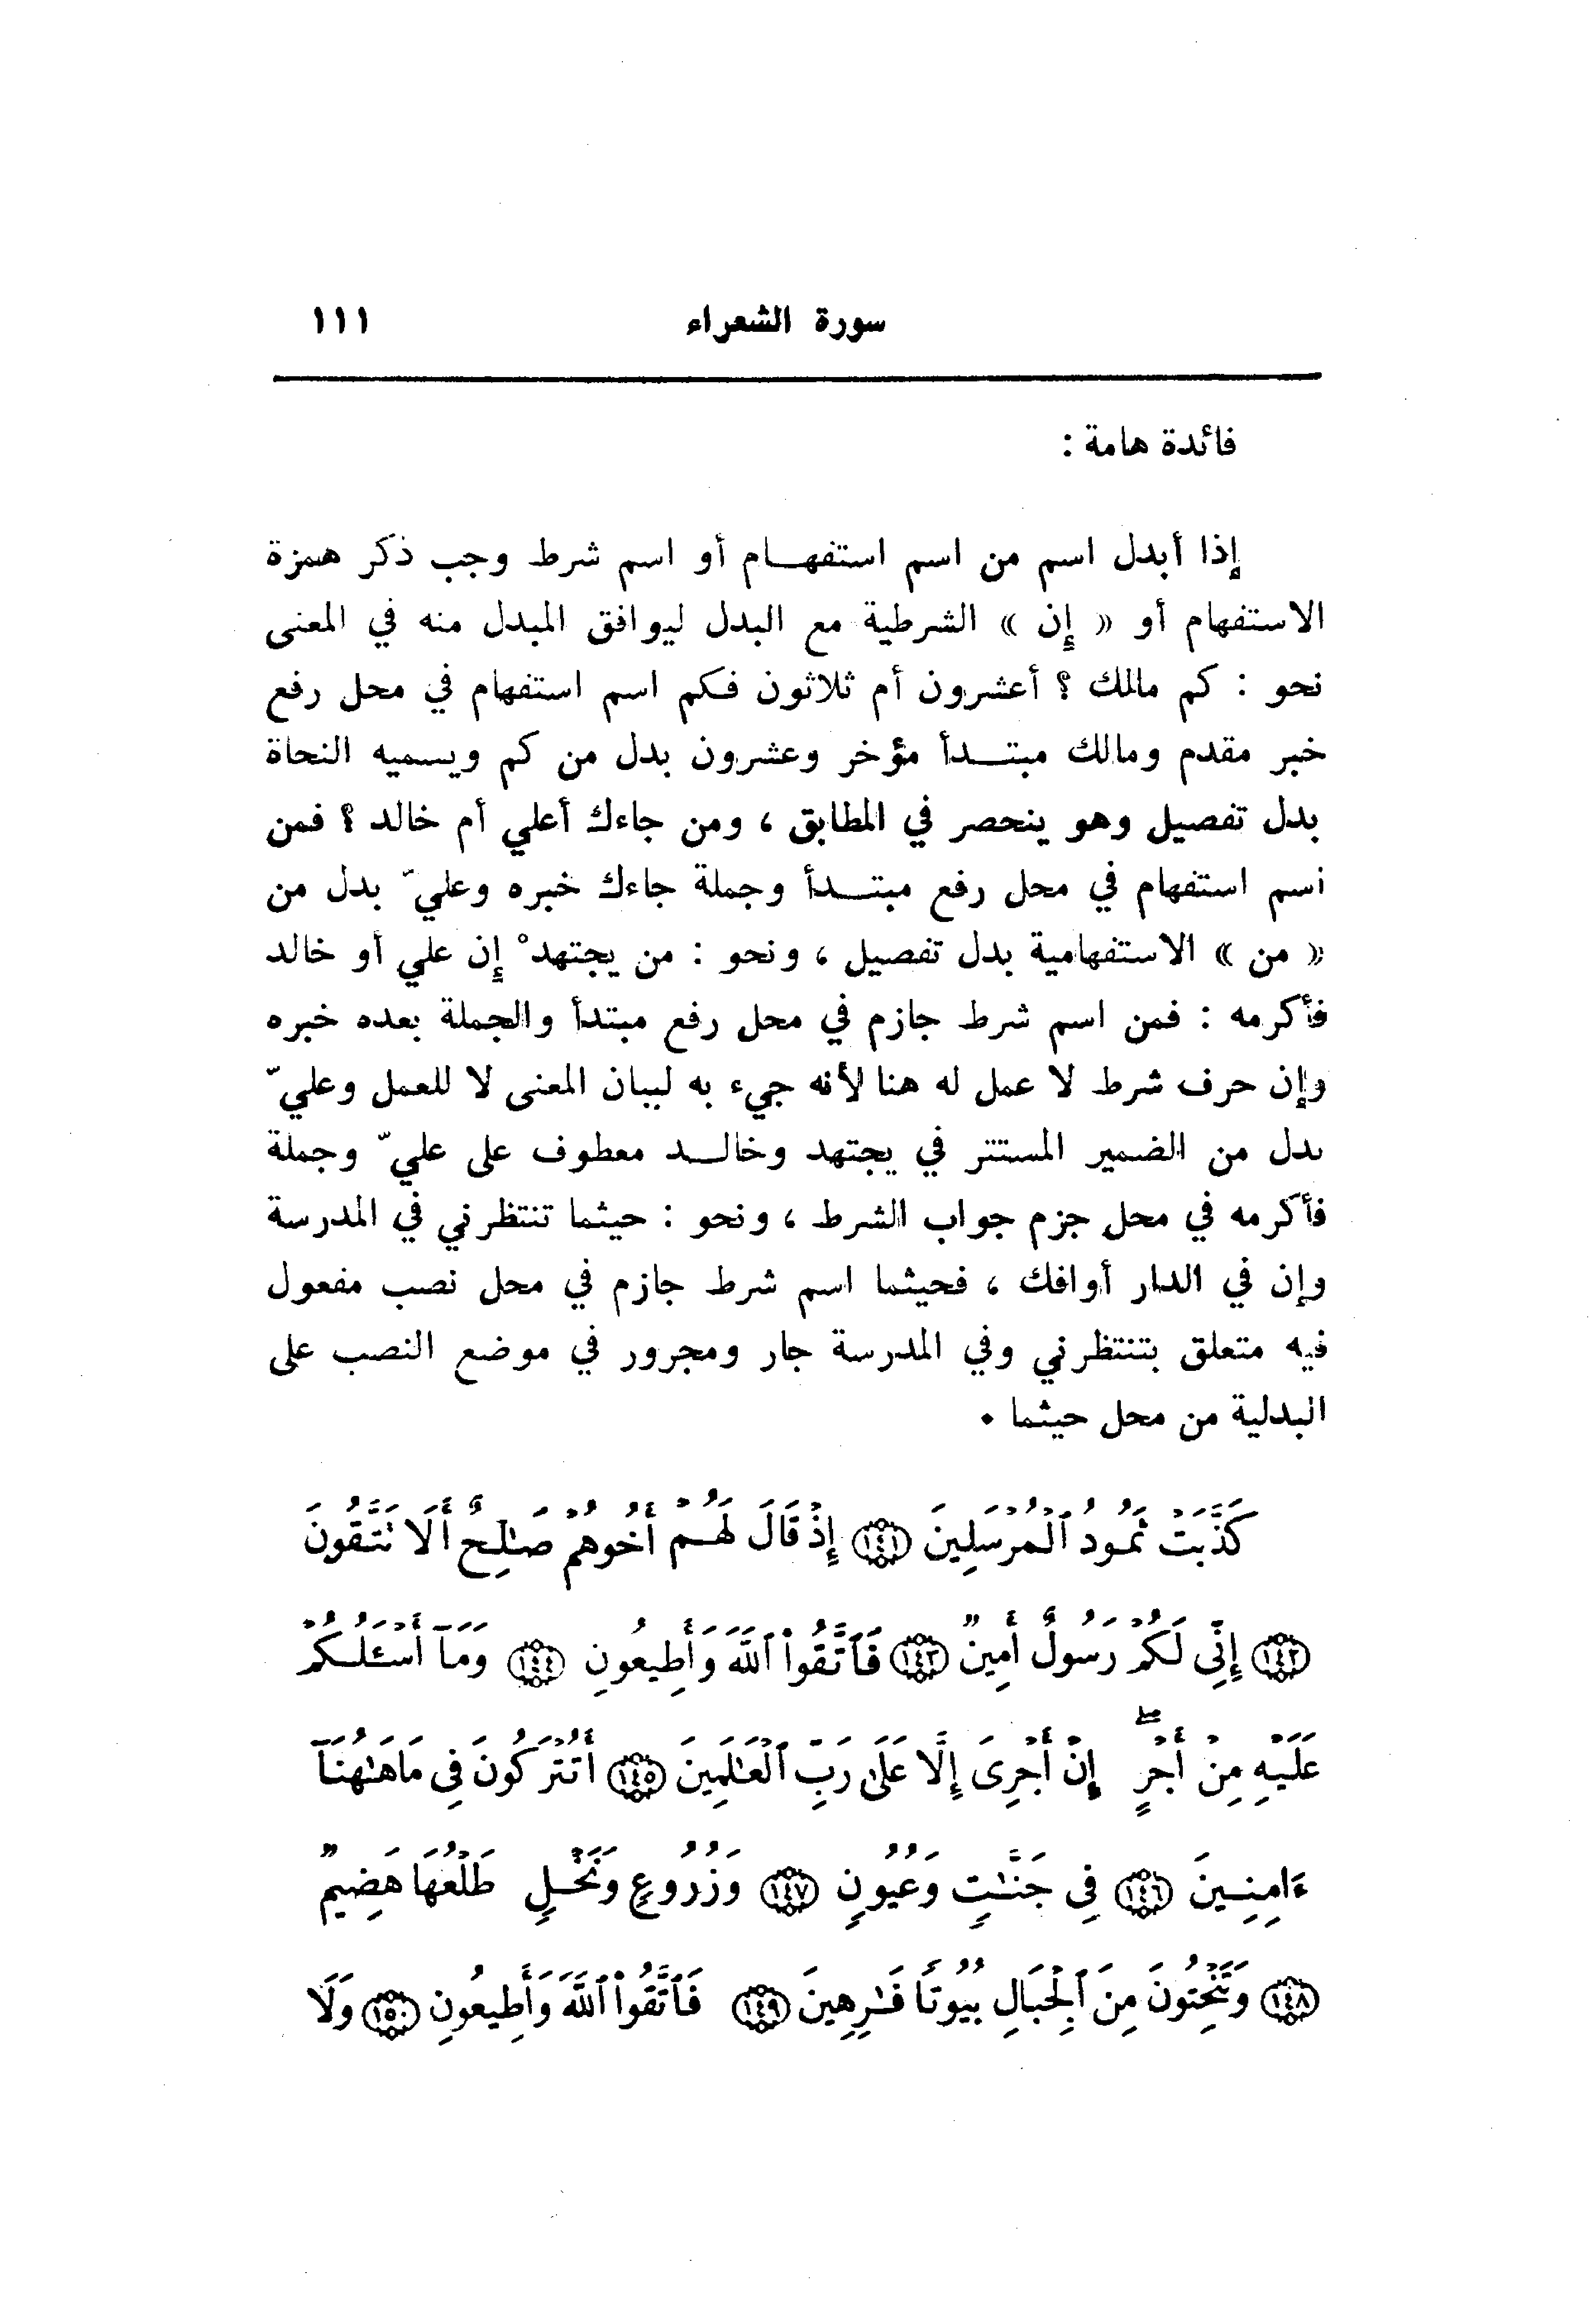 سورة الشعراء ١١١
فائدة هامة :
إذا أبدل اسم من اسم استفهــام أو اسم شرط وجب ذكر همزة
الاستفهام أو « إن » الشرطية مع البدل ليوافق المبدل منه في المعنى
نحو : كم مالك ؟ أعشرون أم ثلاثون فكم اسم استفهام في محل رفع
خبر مقدم ومالك مبتــدأ مؤخر وعشرون بدل من كم ويسميه النحاة
بدل تفصيل وهو ينحصر في المطابق ، ومن جاءك أعلي أم خالد ؟ فمن
اسم استفهام في محل رفع مبتــدأ وجملة جاءك خبره وعليّ بدل من
« من » الاستفهامية بدل تفصيل ، ونحو : من يجتهدْ إن علي أو خالد
فأكرمه : فمن اسم شرط جازم في محل رفع مبتدأ والجملة بعده خبره
وإن حرف شرط لا عمل له هنا لأنه جيء به لبيان المعنى لا للعمل وعليّ
بدل من الضمير المستتر في يجتهد وخالــد معطوف على عليّ وجملة
فأكرمه في محل جزم جواب الشرط ، ونحو : حيثما تنتظرني في المدرسة
وإن في الدار أوافك ، فحيثما اسم شرط جازم في محل نصب مفعول
فيه متعلق بتنتظرني وفي المدرسة جار ومجرور في موضع النصب على
البدلية من محل حيثما ٠
كَذَّبَتْ ثَمُودُ ٱلْمُرْسَلِينَ ١٤١ إِذْ قَالَ لَهُمْ أَخُوهُمْ صَـٰلِحٌ أَلَا تَتَّقُونَ
١٤٢ إِنِّى لَكُمْ رَسُولٌ أَمِينٌ ١٤٣ فَٱتَّقُوا۟ ٱللَّهَ وَأَطِيعُونِ ١٤٤ وَمَآ أَسْـَٔلُكُمْ
عَلَيْهِ مِنْ أَجْرٍ ۖ إِنْ أَجْرِىَ إِلَّا عَلَىٰ رَبِّ ٱلْعَـٰلَمِينَ ١٤٥ أَتُتْرَكُونَ فِى مَا هَـٰهُنَآ
ءَامِنِينَ ١٤٦ فِى جَنَّـٰتٍ وَعُيُونٍ ١٤٧ وَزُرُوعٍ وَنَخْلٍ طَلْعُهَا هَضِيمٌ
١٤٨ وَتَنْحِتُونَ مِنَ ٱلْجِبَالِ بُيُوتًا فَـٰرِهِينَ ١٤٩ فَٱتَّقُوا۟ ٱللَّهَ وَأَطِيعُونِ ١٥٠ وَلَا